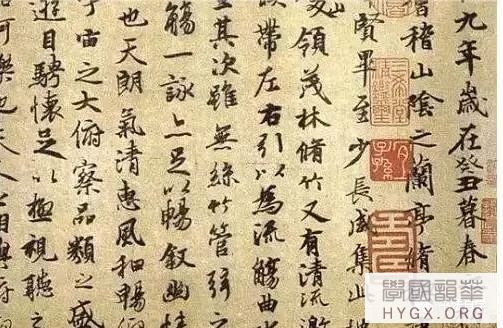 九年歲在癸丑暮春
稽山陰之蘭亭脩
賢畢至少長咸集此地
領茂林脩竹又有清流激
帶左右引以為流觴曲水
坐其次雖無絲竹管弦之
觴一詠亦足以暢叙幽情
也天朗氣清惠風和暢仰
宇宙之大俯察品類之盛
遊目騁懷足以極視聽之
可樂也夫人之相與俯
宜子孫
學國韻華
HYGX.ORG